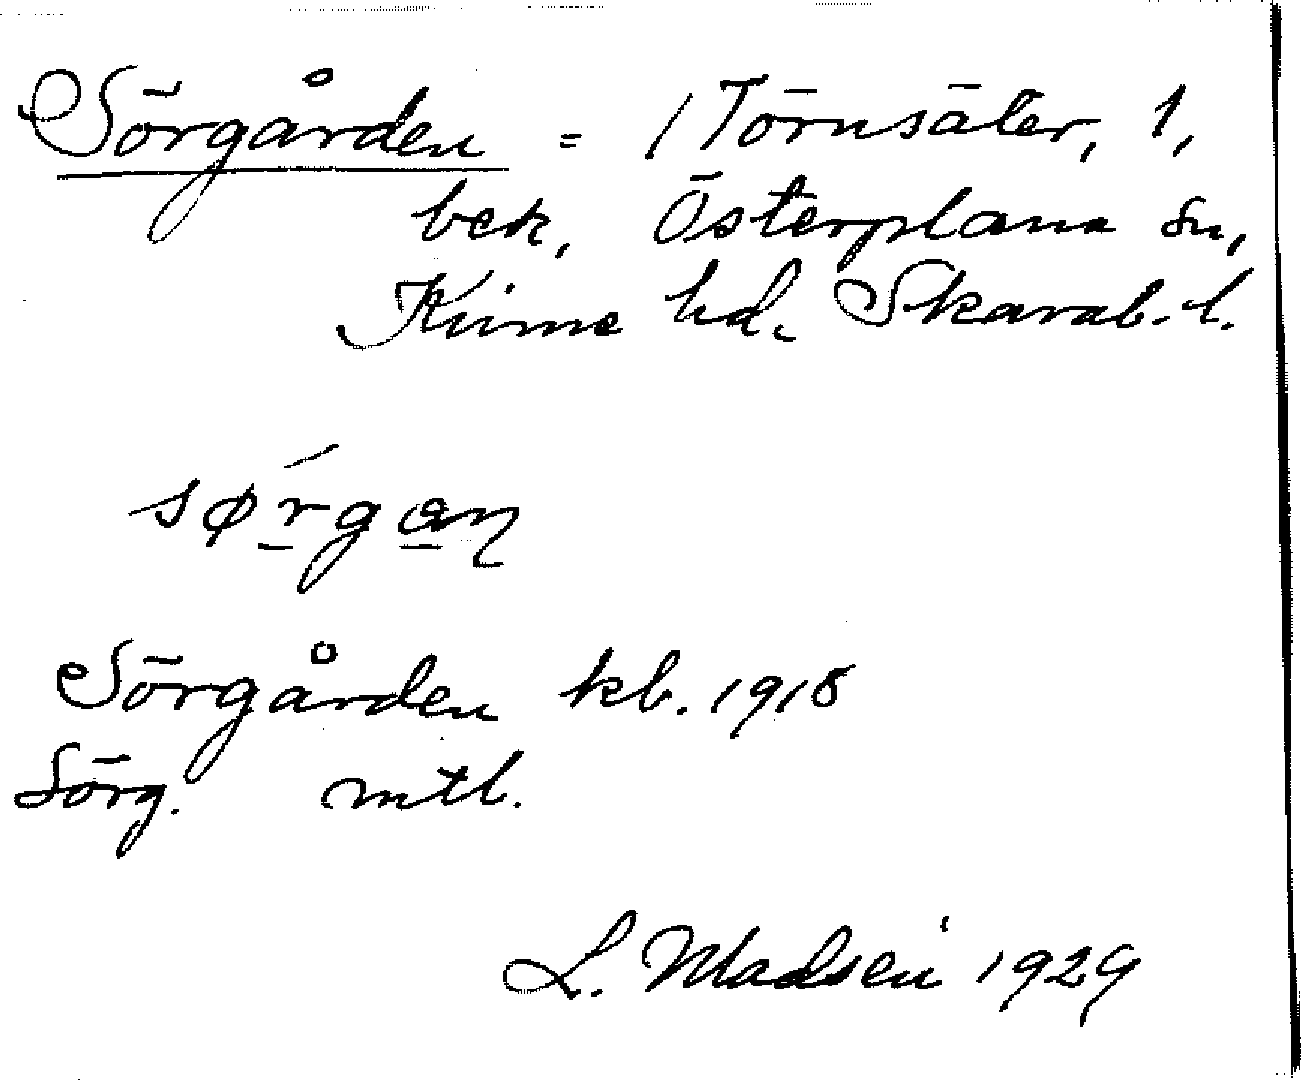 Sörgården = / Törnsäter, 1,
bek, Österplana sn,
Kinne hd. Skarab. l.
sørgan
Sörgården kb. 1918
Sörg. mtl.
L. Madsen 1929